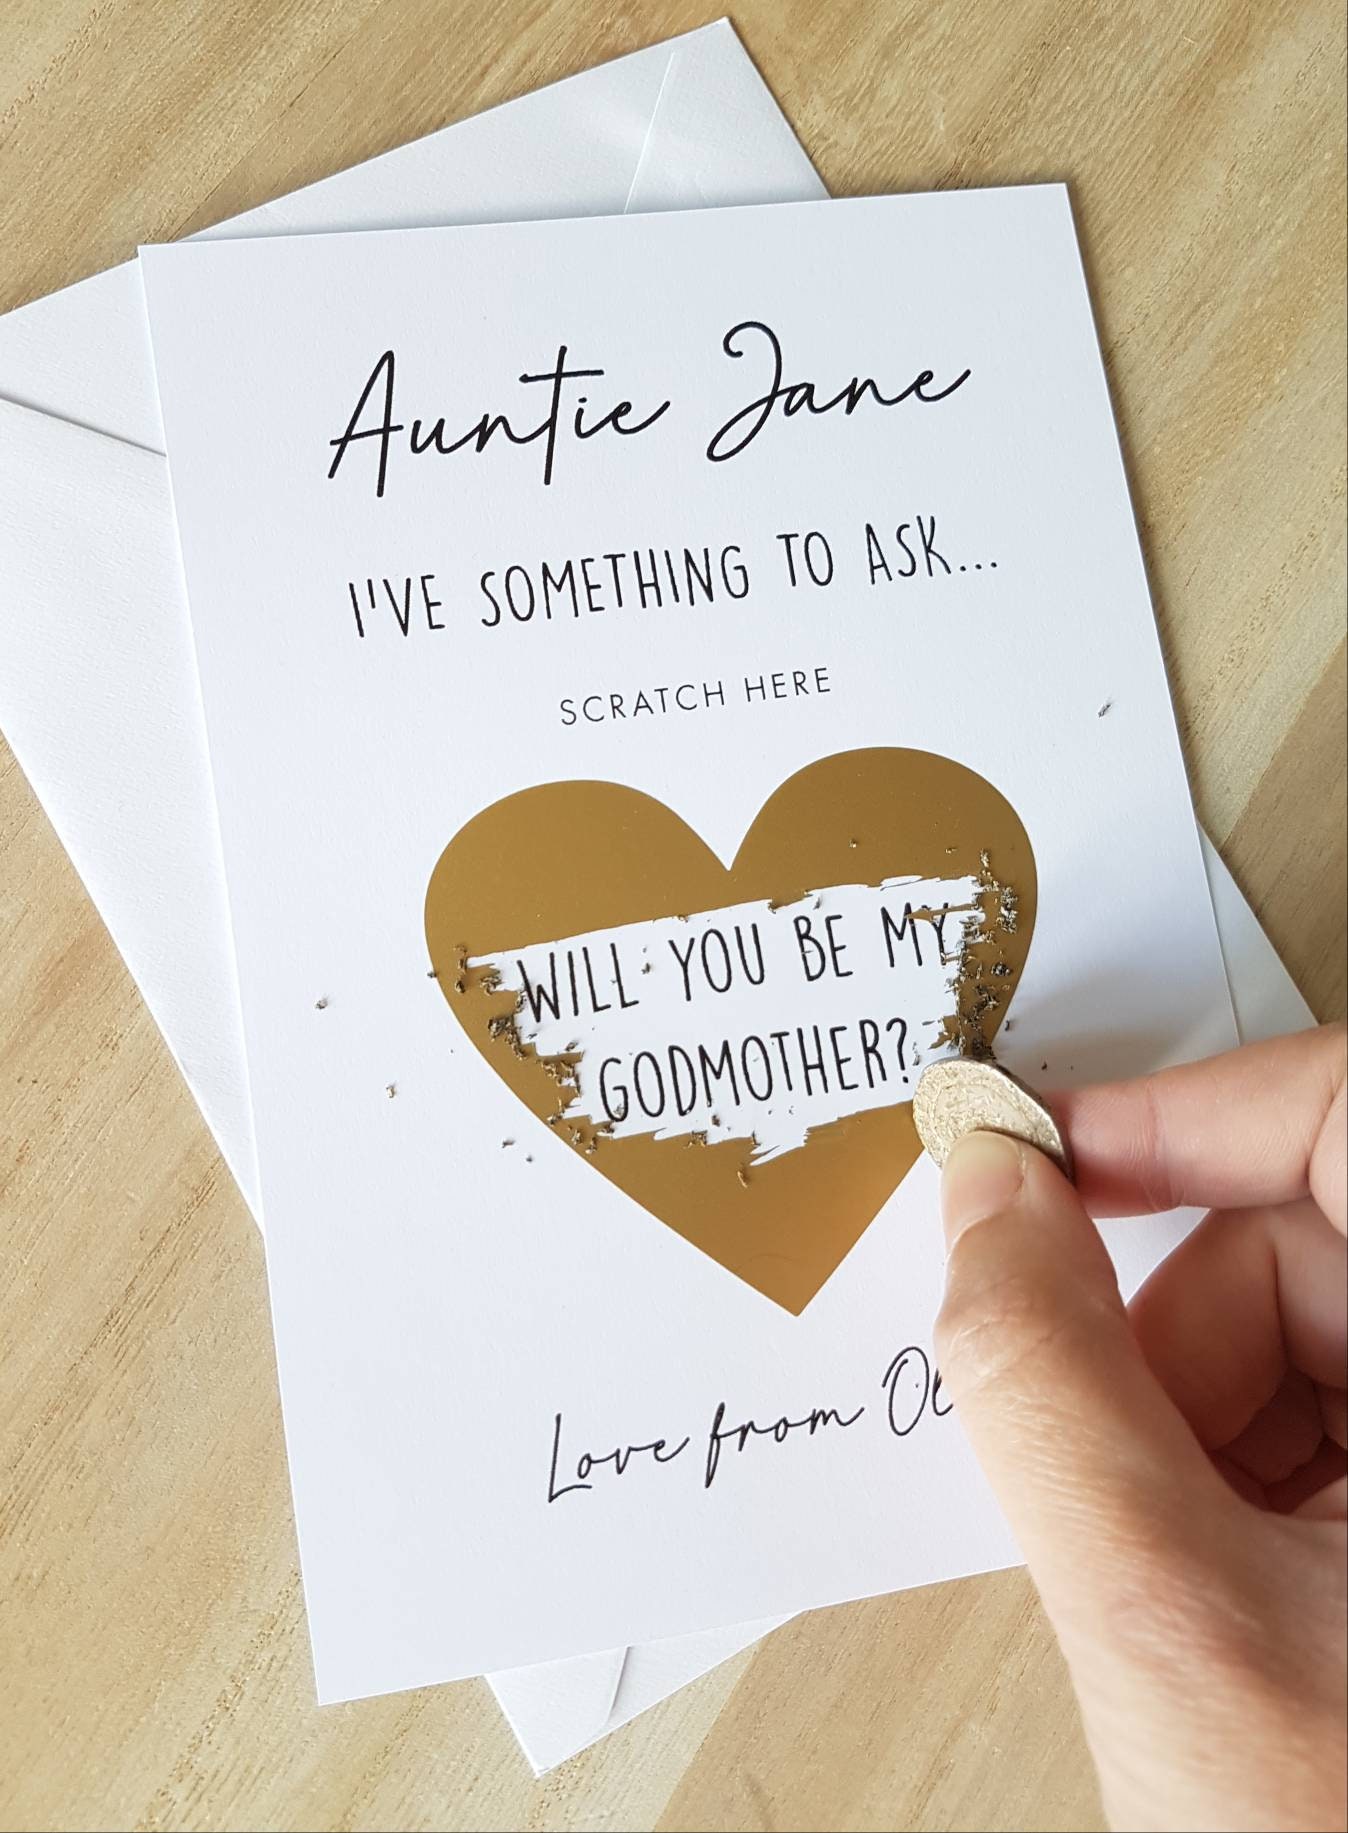 Auntie Jane
I'VE SOMETHING TO ASK...
SCRATCH HERE
WILL YOU BE MY
GODMOTHER?
Love from